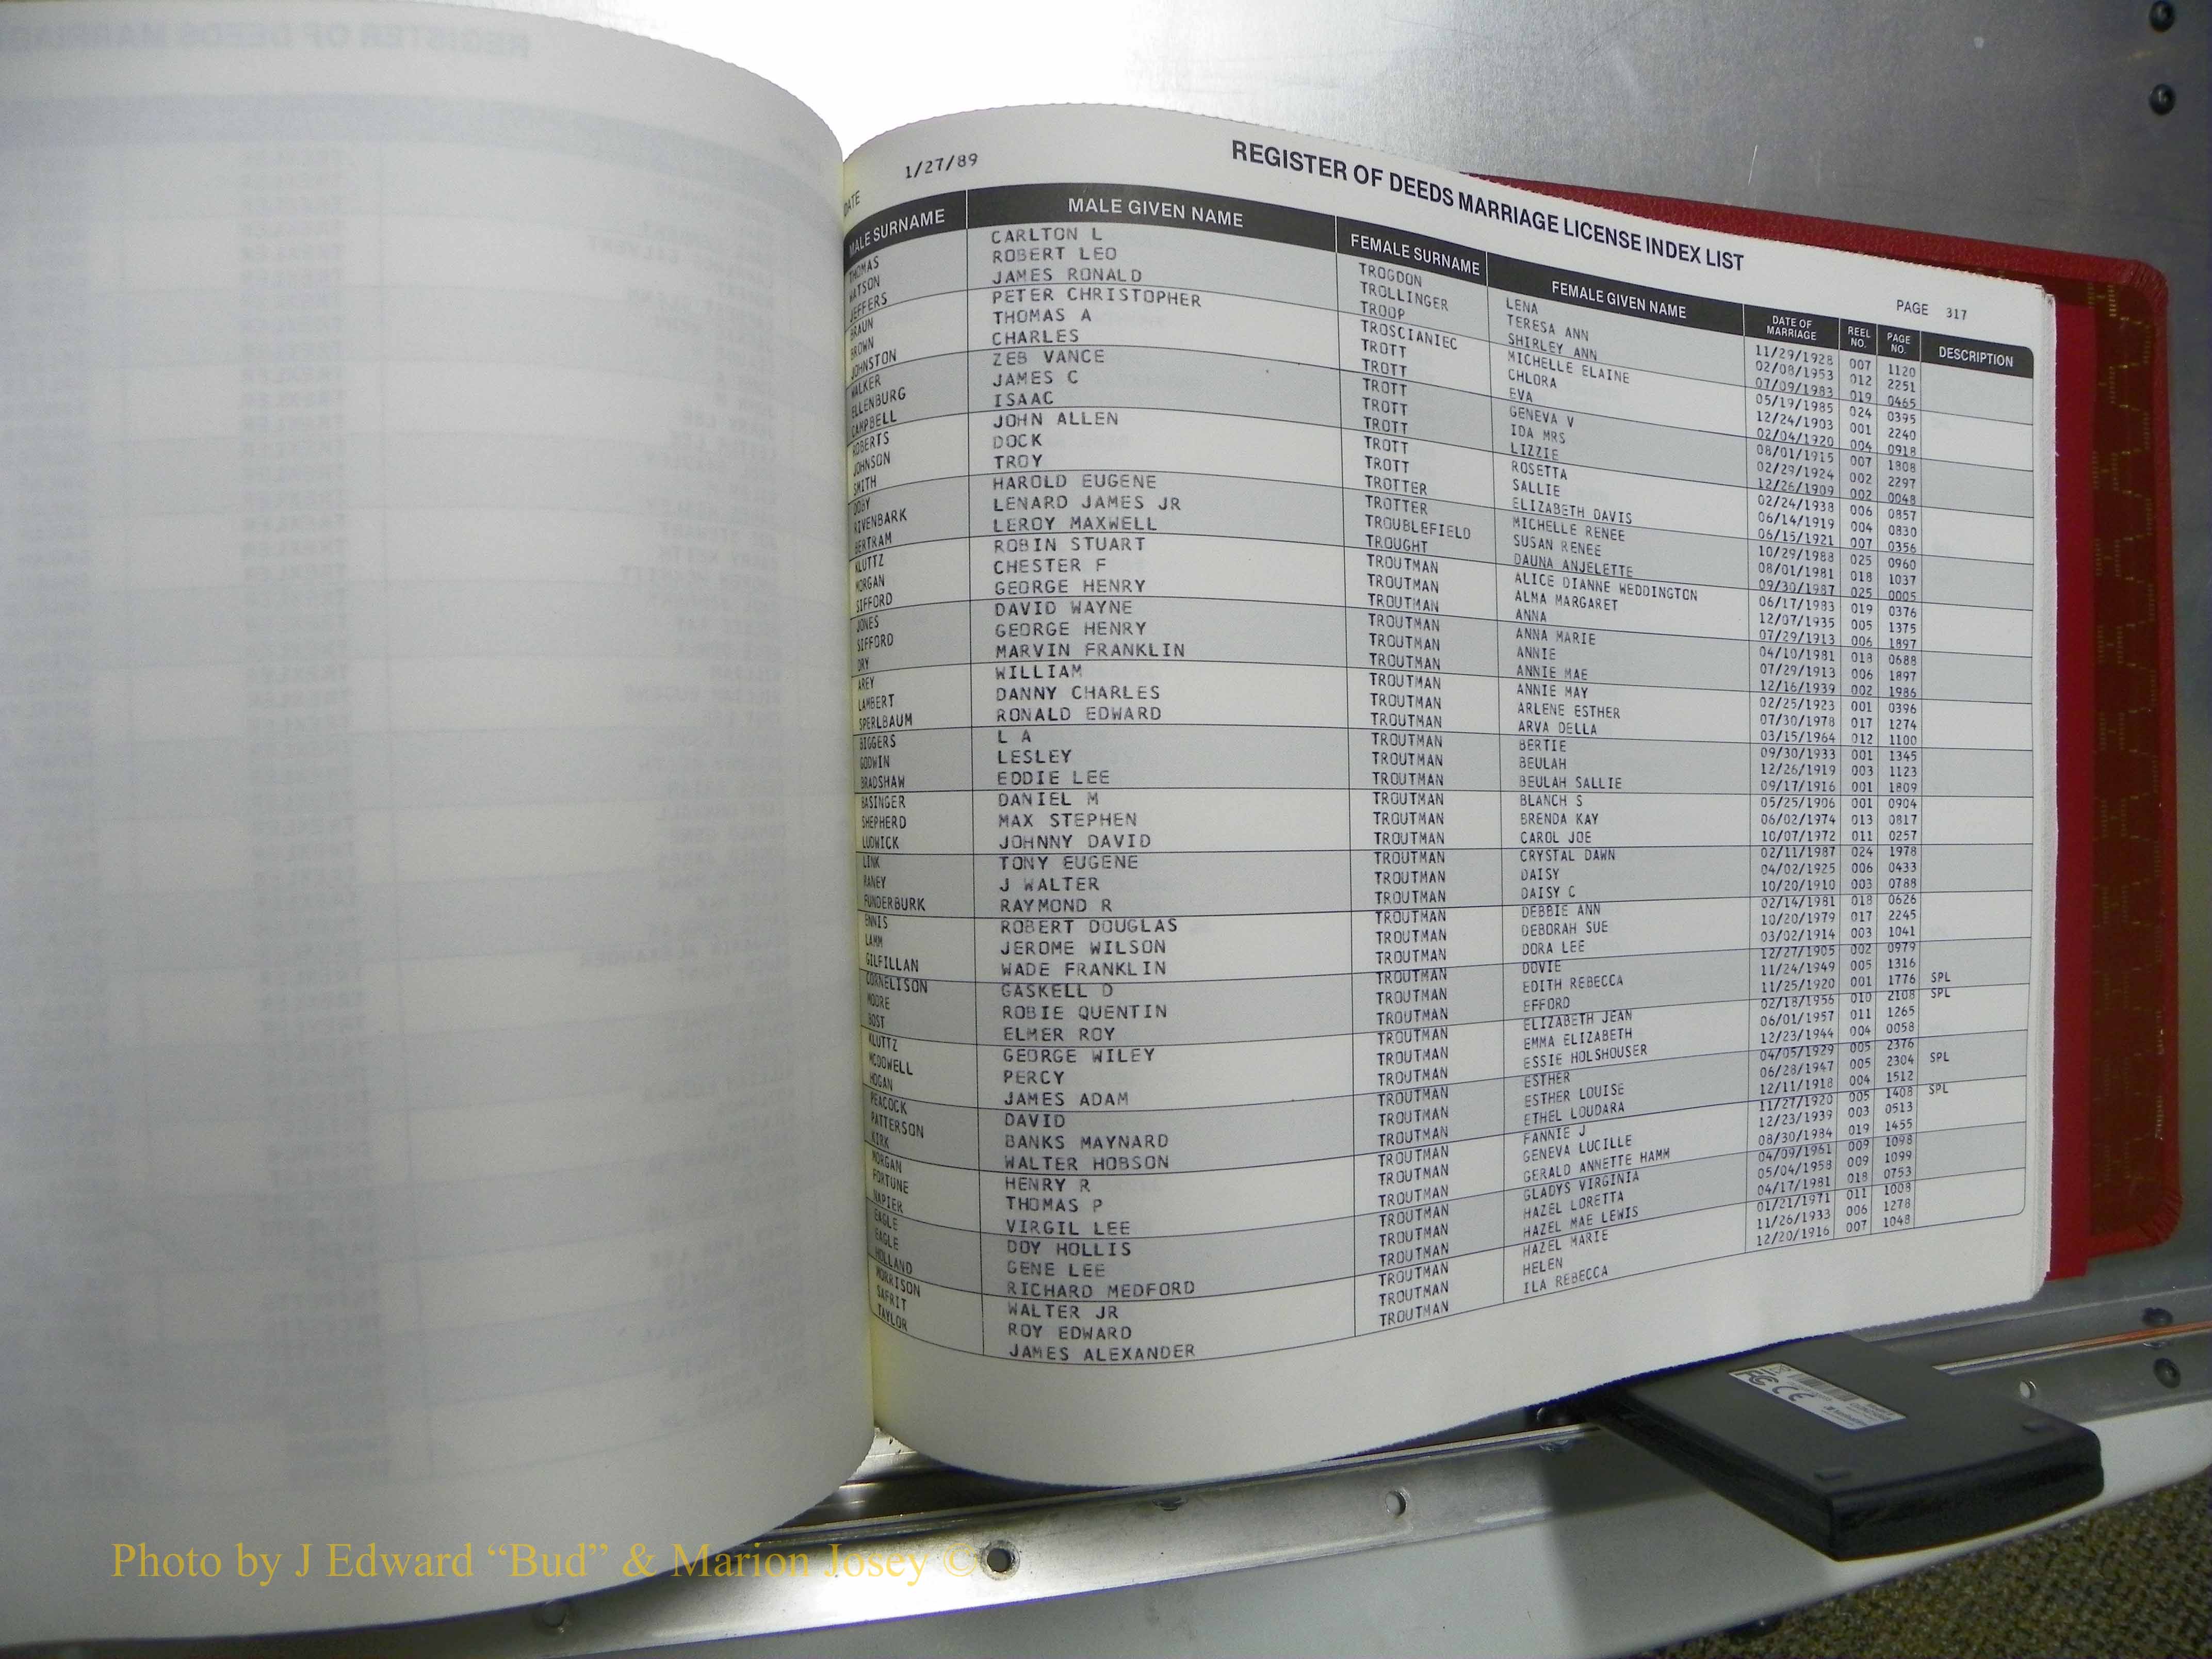 DATE 1/27/89 REGISTER OF DEEDS MARRIAGE LICENSE INDEX LIST PAGE 317
MALE SURNAME MALE GIVEN NAME FEMALE SURNAME FEMALE GIVEN NAME DATE OF MARRIAGE REEL NO. PAGE NO. DESCRIPTION
THOMAS CARLTON L TROGDON LENA 11/29/1928 007 1120
WATSON ROBERT LEO TROLLINGER TERESA ANN 02/08/1953 012 2251
JEFFERS JAMES RONALD TROOP SHIRLEY ANN 07/09/1983 019 0465
BRAUN PETER CHRISTOPHER TROSCIANIEC MICHELLE ELAINE 05/19/1985 024 0395
BROWN THOMAS A TROTT CHLORA 12/24/1903 001 2240
JOHNSTON CHARLES TROTT EVA 02/04/1920 004 0918
WALKER ZEB VANCE TROTT GENEVA V 08/01/1915 007 1808
ELLENBURG JAMES C TROTT IDA MRS 02/29/1924 002 2297
CAMPBELL ISAAC TROTT LIZZIE 12/26/1909 002 0048
ROBERTS JOHN ALLEN TROTT ROSETTA 02/24/1938 006 0857
JOHNSON DOCK TROTT SALLIE 06/14/1919 004 0830
SMITH TROY TROTTER ELIZABETH DAVIS 06/15/1921 007 0356
DOBY HAROLD EUGENE TROTTER MICHELLE RENEE 10/29/1988 025 0960
RIVENBARK LENARD JAMES JR TROUBLEFIELD SUSAN RENEE 08/01/1981 018 1037
BERTRAM LEROY MAXWELL TROUGHT DAUNA ANJELETTE 09/30/1987 025 0005
KLUTTZ ROBIN STUART TROUTMAN ALICE DIANNE WEDDINGTON 06/17/1983 019 0376
MORGAN CHESTER F TROUTMAN ALMA MARGARET 12/07/1935 005 1375
SIFFORD GEORGE HENRY TROUTMAN ANNA 07/29/1913 006 1897
JONES DAVID WAYNE TROUTMAN ANNA MARIE 04/10/1981 018 0688
SIFFORD GEORGE HENRY TROUTMAN ANNIE 07/29/1913 006 1897
DRY MARVIN FRANKLIN TROUTMAN ANNIE MAE 12/16/1939 002 1986
AREY WILLIAM TROUTMAN ANNIE MAY 02/25/1923 001 0396
LAMBERT DANNY CHARLES TROUTMAN ARLENE ESTHER 07/30/1978 017 1274
SPERLBAUM RONALD EDWARD TROUTMAN ARVA DELLA 03/15/1964 012 1100
BIGGERS L A TROUTMAN BERTIE 09/30/1933 001 1345
GODWIN LESLEY TROUTMAN BEULAH 12/26/1919 003 1123
BRADSHAW EDDIE LEE TROUTMAN BEULAH SALLIE 09/17/1916 001 1809
BASINGER DANIEL M TROUTMAN BLANCH S 05/25/1906 001 0904
SHEPHERD MAX STEPHEN TROUTMAN BRENDA KAY 06/02/1974 013 0817
LUDWICK JOHNNY DAVID TROUTMAN CAROL JOE 10/07/1972 011 0257
LINK TONY EUGENE TROUTMAN CRYSTAL DAWN 02/11/1987 024 1978
RANEY J WALTER TROUTMAN DAISY 04/02/1925 006 0433
FUNDERBURK RAYMOND R TROUTMAN DAISY C 10/20/1910 003 0788
ENNIS ROBERT DOUGLAS TROUTMAN DEBBIE ANN 02/14/1981 018 0626
LAMM JEROME WILSON TROUTMAN DEBORAH SUE 10/20/1979 017 2245
GILFILLAN WADE FRANKLIN TROUTMAN DORA LEE 03/02/1914 003 1041
CORNELISON GASKELL D TROUTMAN DOVIE 12/27/1905 002 0979
MOORE ROBIE QUENTIN TROUTMAN EDITH REBECCA 11/24/1949 005 1316
BOST ELMER ROY TROUTMAN EFFORD 11/25/1920 001 1776 SPL
KLUTTZ GEORGE WILEY TROUTMAN ELIZABETH JEAN 02/18/1956 010 2108 SPL
MCDOWELL PERCY TROUTMAN EMMA ELIZABETH 06/01/1957 011 1265
HOGAN JAMES ADAM TROUTMAN ESSIE HOLSHOUSER 12/23/1944 004 0058
PEACOCK DAVID TROUTMAN ESTHER 04/05/1929 005 2376
PATTERSON BANKS MAYNARD TROUTMAN ESTHER LOUISE 06/28/1947 005 2304 SPL
KIRK WALTER HOBSON TROUTMAN ETHEL LOUDARA 12/11/1918 004 1512
MORGAN HENRY R TROUTMAN FANNIE J 11/27/1920 005 1408 SPL
FORTUNE THOMAS P TROUTMAN GENEVA LUCILLE 12/23/1939 003 0513
NAPIER VIRGIL LEE TROUTMAN GERALD ANNETTE HAMM 08/30/1984 019 1455
EAGLE DOY HOLLIS TROUTMAN GLADYS VIRGINIA 04/09/1961 009 1098
EAGLE GENE LEE TROUTMAN HAZEL LORETTA 05/04/1958 009 1099
HOLLAND RICHARD MEDFORD TROUTMAN HAZEL MAE LEWIS 04/17/1981 018 0753
MORRISON WALTER JR TROUTMAN HAZEL MARIE 01/21/1971 011 1008
SAFRIT ROY EDWARD TROUTMAN HELEN 11/26/1933 006 1278
TAYLOR JAMES ALEXANDER TROUTMAN ILA REBECCA 12/20/1916 007 1048
Photo by J Edward “Bud” & Marion Josey ©